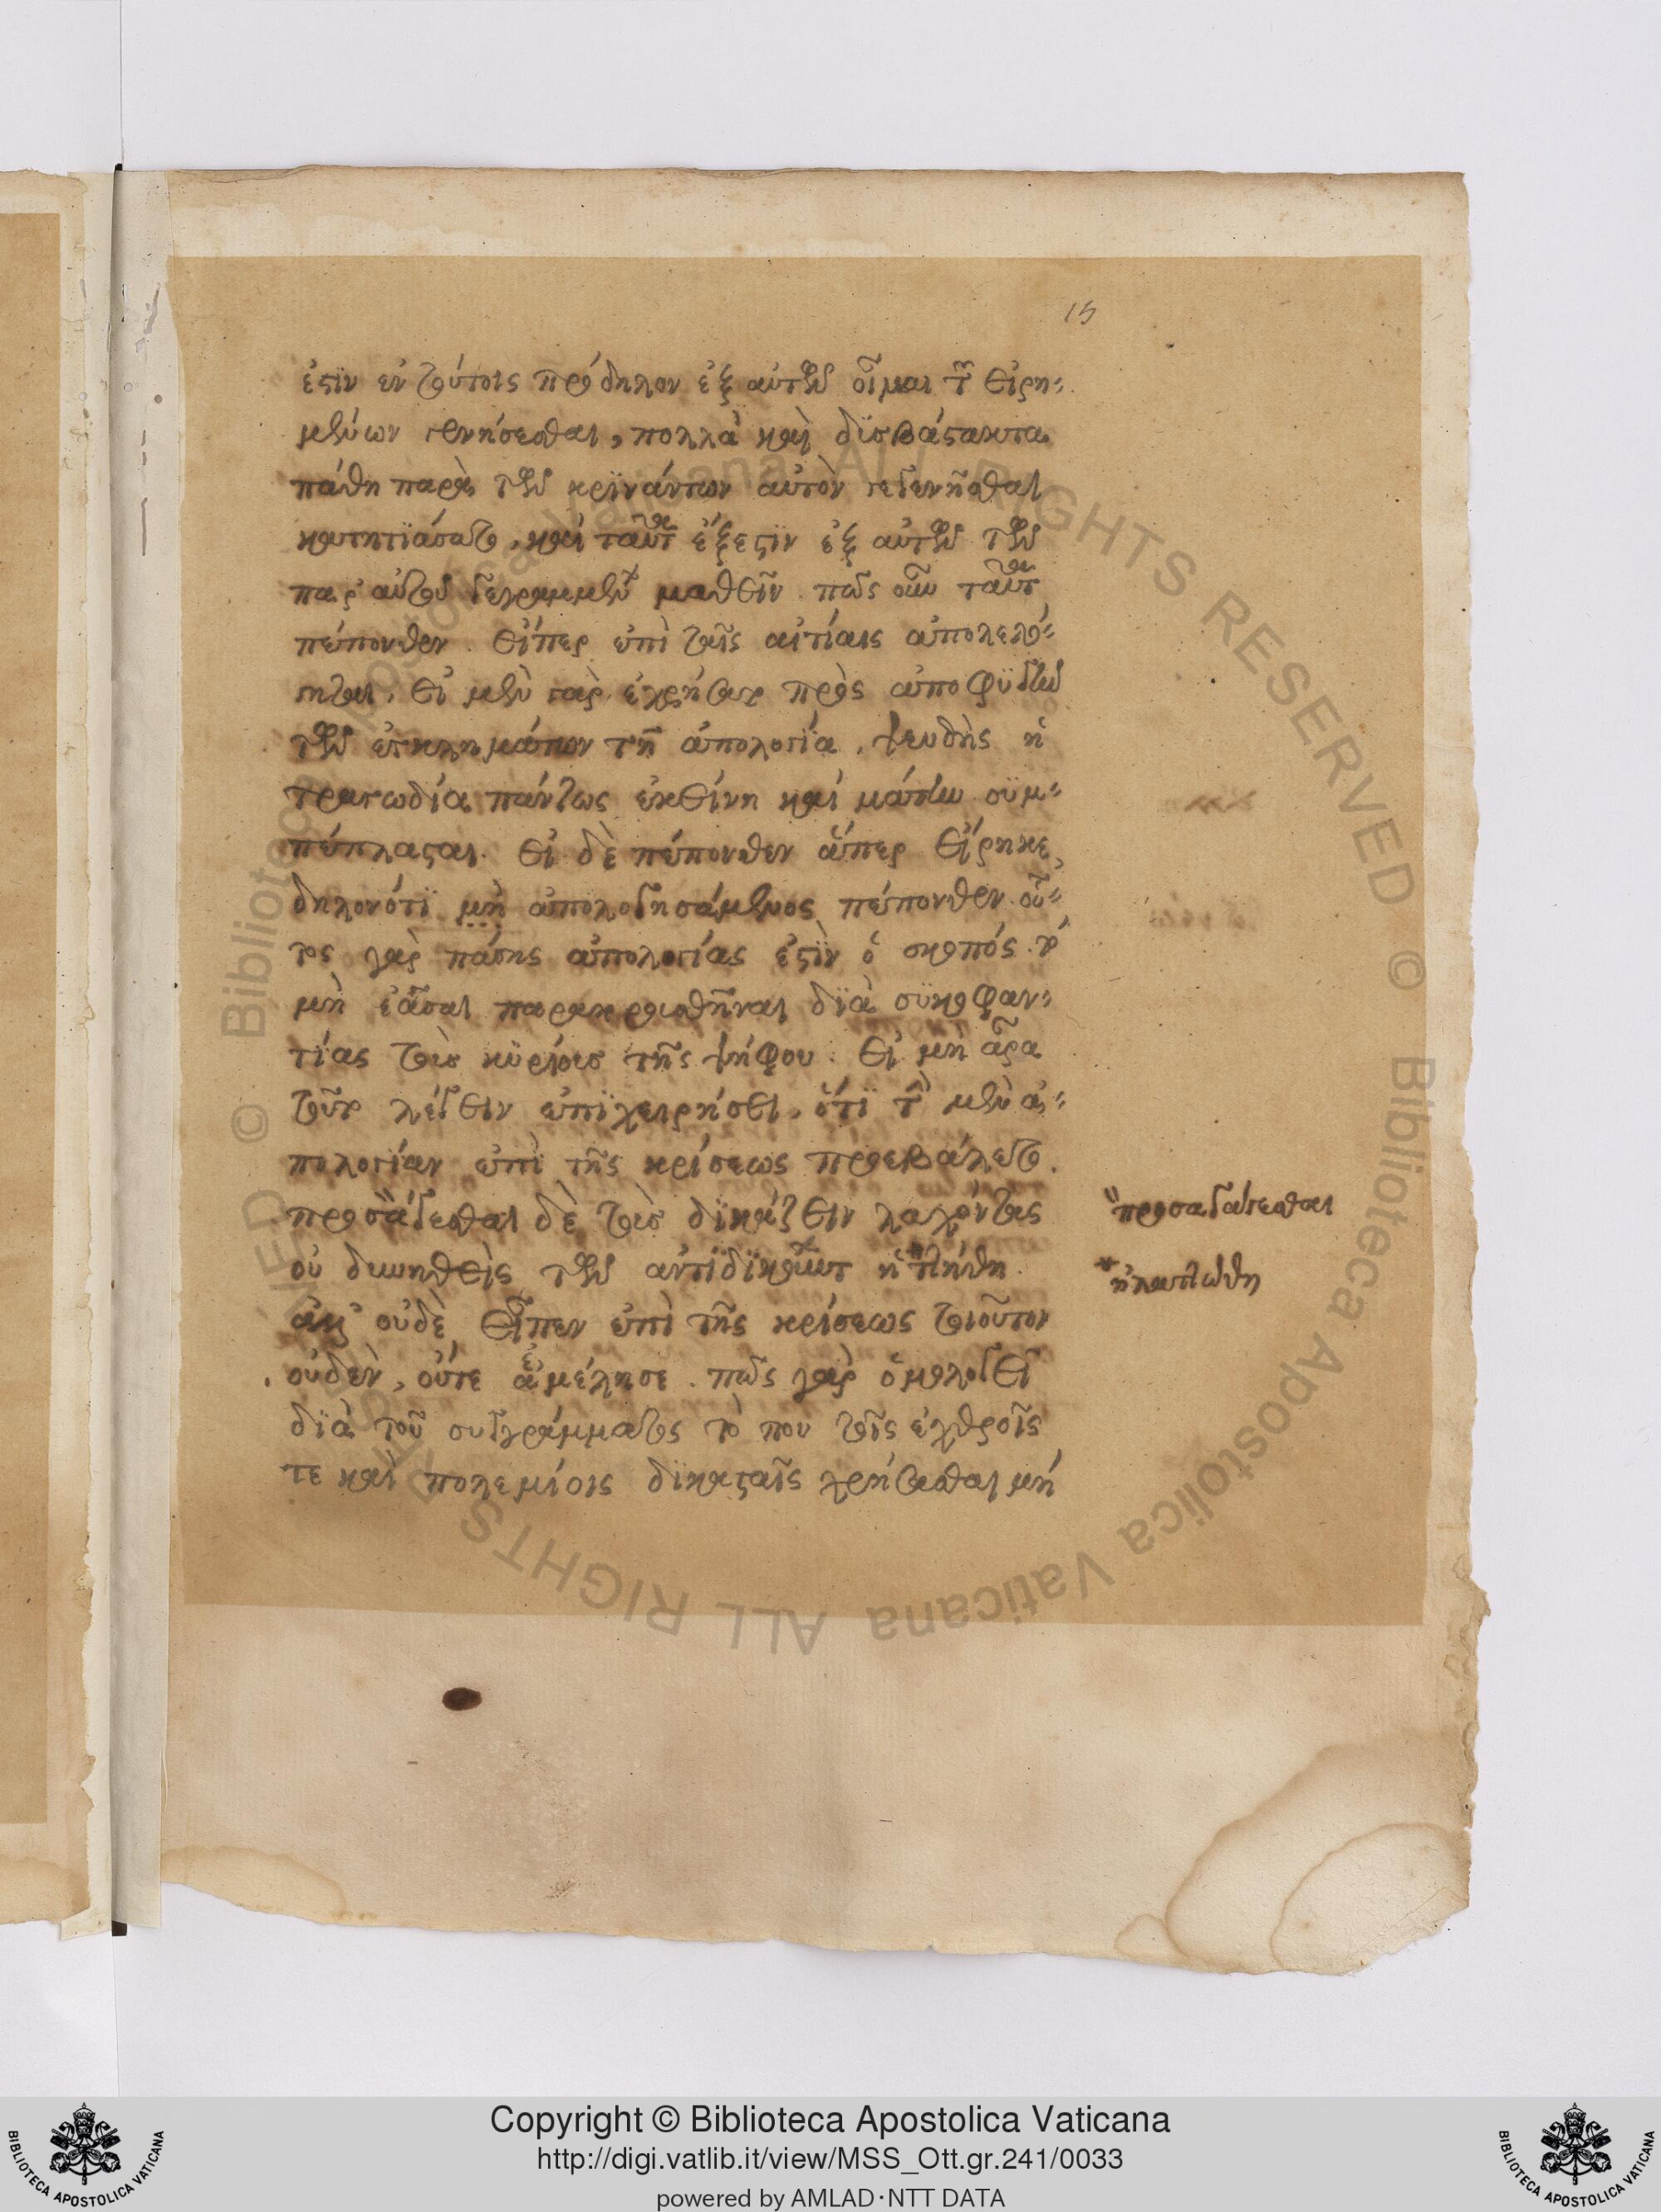 15
ἐστὶν ἐν τούτοις πρόδηλον ἐξ αὐτῶν οἶμαι τῶν εἰρη-
μένων γενήσεσθαι, πολλὰ καὶ δυσβάστακτα
πάθη παρὰ τῶν κρινάντων αὐτὸν γεγενῆσθαι
κατῃτιάσατο, καὶ ταῦτα ἔξεστιν ἐξ αὐτῶν τῶν
παρ' αὐτοῦ γεγραμμένων μαθεῖν. πῶς οὖν ταῦτα
πέπονθεν. εἴπερ ἐπὶ ταῖς αἰτίαις ἀπολελό-
γηται, εἰ μὲν γὰρ ἐχρήσατο πρὸς ἀποφυγὴν
τῶν ἐγκλημάτων τῇ ἀπολογίᾳ, ψευδὴς ἡ
τραγωδία πάντως ἐκείνη καὶ μάτην συμ-
πέπλασται. εἰ δὲ πέπονθεν ἅπερ εἴρηκε,
δηλονότι μὴ ἀπολογησάμενος πέπονθεν. οὗ-
τος γὰρ πάσης ἀπολογίας ἐστὶν ὁ σκοπός. τὸ
μὴ ἐᾶσαι παρακρουσθῆναι διὰ συκοφαν-
τίας τοὺς κυρίους τῆς ψήφου. εἰ μὴ ἄρα
τοῦτο λέγειν ἐπιχειρήσει, ὅτι τὴν μὲν ἀ-
πολογίαν ἐπὶ τῆς κρίσεως προεβάλετο.
προσάγεσθαι δὲ τοὺς δικάζειν λαχόντας
οὐ δυνηθεὶς τῶν ἀντιδικούντων ἡττήθη.
ἀλλ' οὐδὲ εἶπεν ἐπὶ τῆς κρίσεως τοιοῦτον
οὐδὲν, οὔτε ἠμέλησε. πῶς γὰρ ὁμολογεῖ
διὰ τοῦ συγγράμματος τό που τοῖς ἐχθροῖς
τε καὶ πολεμίοις δικασταῖς χρήσασθαι μὴ
προσαγαγέσθαι
ἠλαττώθη
Copyright © Biblioteca Apostolica Vaticana
http://digi.vatlib.it/view/MSS_Ott.gr.241/0033
powered by AMLAD·NTT DATA